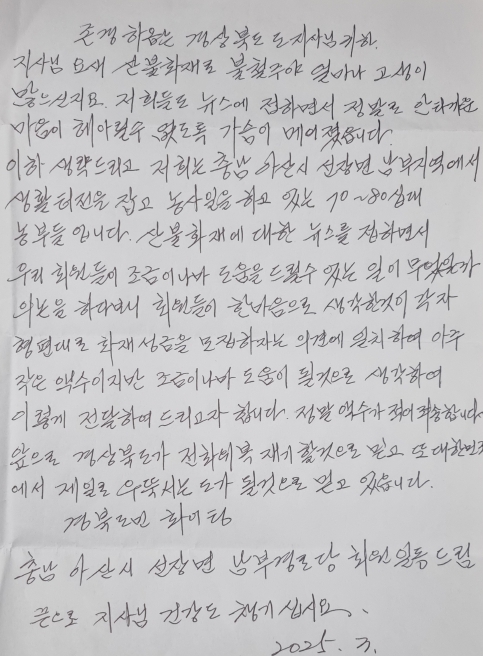 존경하옵는 경상북도 도지사님 귀하.
지사님 요새 산불화재로 불철주야 얼마나 고생이
많으신지요. 저희들도 뉴스에 접하면서 정말로 안타까운
마음이 헤아릴수 없도록 가슴이 메어졌읍니다.
이하 생략드리고 저희는 충남 아산시 선장면 남부지역에서
생활터전을 잡고 농사일을 하고 있는 70~80십대
농부들 입니다. 산불화재에 대한 뉴스를 접하면서
우리 회원들이 조금이나마 도움을 드릴수 있는 일이 무엇일까
의논을 하다보니 회원들이 한마음으로 생각한것이 각자
형편대로 화재성금을 모집하자는 의견에 일치하여 아주
작은 액수이지만 조금이나마 도움이 될것으로 생각하여
이렇게 전달하여 드리고자 합니다. 정말 액수가 적어 죄송합니다
앞으로 경상북도가 전화위복 재기할것으로 믿고 또 대한민국
에서 제일로 우뚝서는 도가 될것으로 믿고 있읍니다.
경북도민 화이팅
충남 아산시 선장면 남부경로당 회원일동 드림
끝으로 지사님 건강도 챙기십시요.
2025. 3.